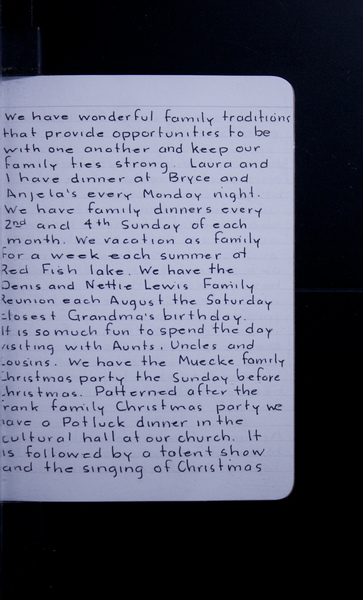 We have wonderful family traditions
that provide opportunities to be
with one another and keep our
family ties strong. Laura and
I have dinner at Bryce and
Anjela's every Monday night.
We have family dinners every
2nd and 4th Sunday of each
month. We vacation as family
for a week each summer at
Red Fish lake. We have the
Denis and Nettie Lewis Family
Reunion each August the Saturday
closest Grandma's birthday.
It is so much fun to spend the day
visiting with Aunts, Uncles and
cousins. We have the Muecke family
Christmas party the Sunday before
Christmas. Patterned after the
Frank family Christmas party we
have a Potluck dinner in the
cultural hall at our church. It
is followed by a talent show
and the singing of Christmas